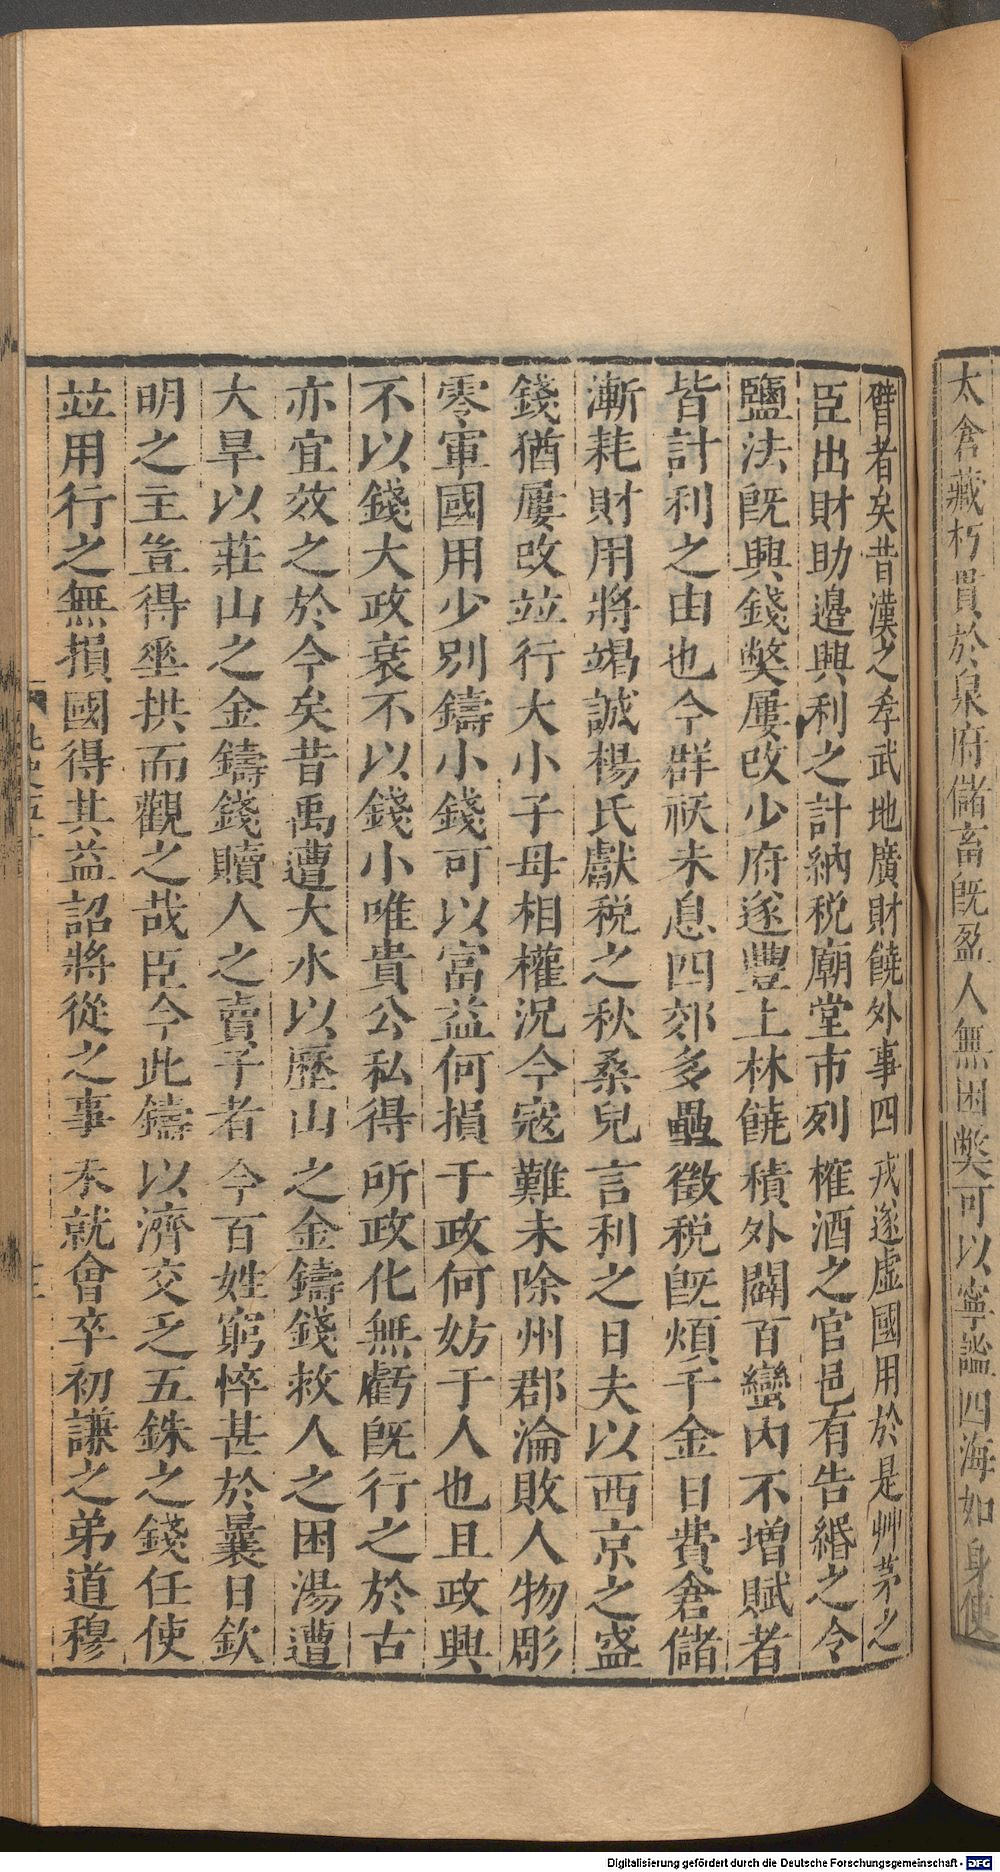 太倉藏朽貫於泉府儲畜旣盈人無困獘可以寧謐四海如身使
臂者矣昔漢之孝武地廣財饒外事四戎遂虛國用於是艸茅之
臣出財助邊興利之計納稅廟堂市列榷酒之官邑有告緡之令
鹽法旣興錢獘屢改少府遂豐上林饒積外闢百蠻内不增賦者
皆計利之由也今群祅未息四郊多壘徵稅旣煩千金日費倉儲
漸耗財用將竭誠楊氏獻稅之秋桑兒言利之日夫以西京之盛
錢猶屢改並行大小子母相權況今寇難未除州郡淪敗人物彫
零軍國用少別鑄小錢可以富益何損于政何妨于人也且政興
不以錢大政衰不以錢小唯貴公私得所政化無虧旣行之於古
亦宜效之於今矣昔禹遭大水以歷山之金鑄錢救人之困湯遭
大旱以莊山之金鑄錢贖人之賣子者今百姓窮悴甚於曩日欽
明之主豈得垂拱而觀之哉臣今此鑄以濟交乏五銖之錢任使
並用行之無損國得其益詔將從之事未就會卒初謙之弟道穆
北史五十
Digitalisierung gefördert durch die Deutsche Forschungsgemeinschaft - DFG